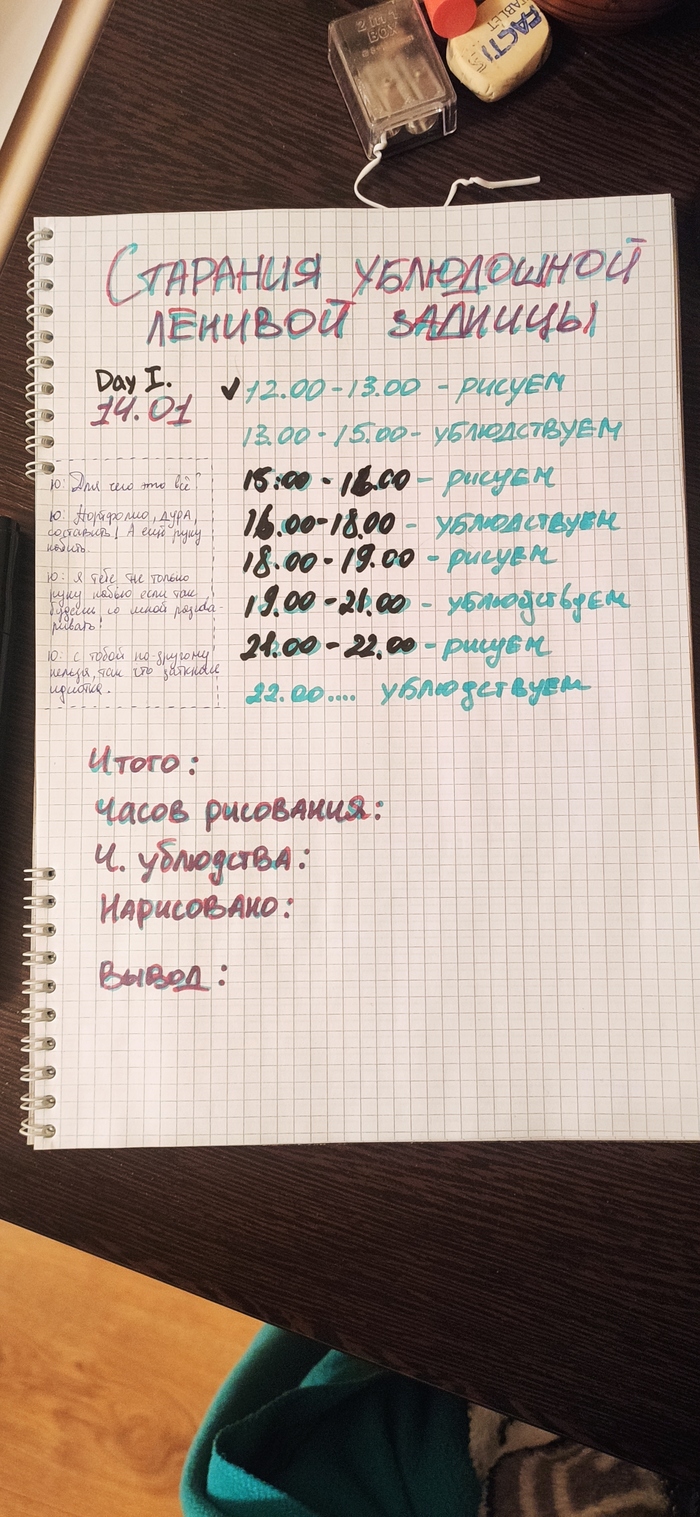 2 in 1
BOX
FACTI
TABLET
СТАРАНИЯ УБЛЮДОШНОЙ
ЛЕНИВОЙ ЗАДНИЦЫ
Day I.
14.01
✓ 12.00-13.00 - РИСУЕМ
13.00-15.00- УБЛЮДСТВУЕМ
15:00 - 16.00 - РИСУЕМ
16.00-18.00 - УБЛЮДСТВУЕМ
18.00-19.00 - РИСУЕМ
19.00-21.00 - УБЛЮДСТВУЕМ
21.00-22.00 - РИСУЕМ
22.00.... УБЛЮДСТВУЕМ
Ю: Для чего это всё?
Ю: Портфолио, дура,
составить! А ещё руку
набить.
Ю: я тебе не только
руку набью если так
будешь со мной разгова-
ривать!
Ю: с тобой по-другому
нельзя, так что заткнись
идиотка.
Итого:
Часов рисования:
Ч. ублюдства:
Нарисовано:
Вывод: